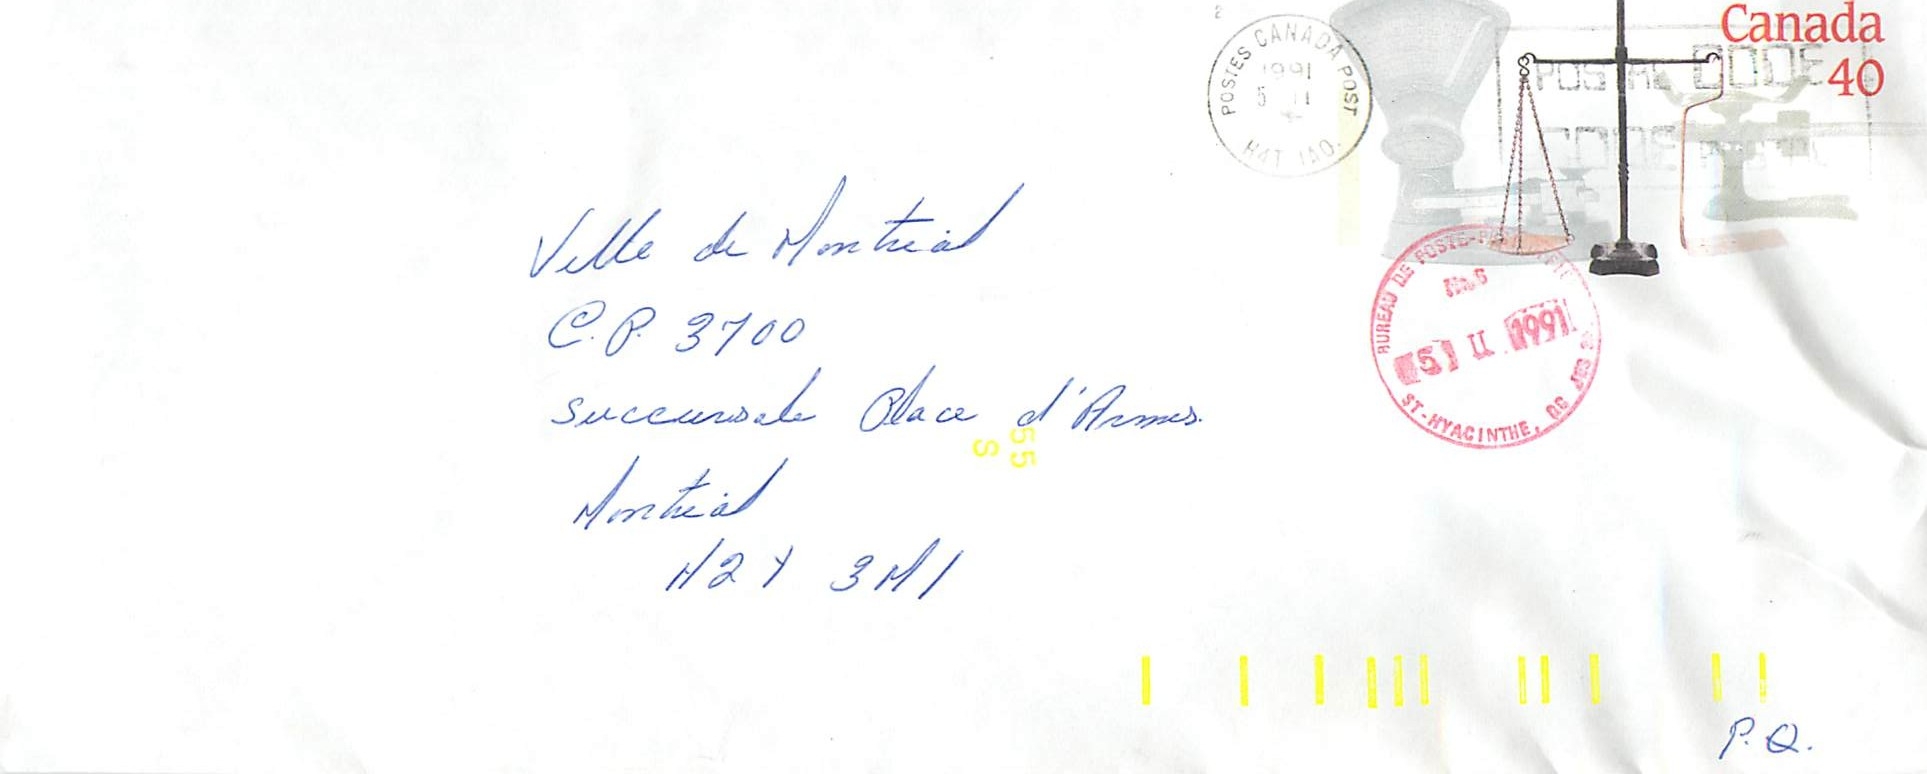 2
POSTES CANADA POST
1991
5 II
H4T 1A0.
Canada
40
POSTAL CODE
CODE POSTAL
Ville de Montréal
C.P. 3700
Succursale Place d'Armes.
Montréal
H2Y 3M1
55
S
BUREAU DE POSTE
No.6
5 II 1991
ST-HYACINTHE, QC
P.Q.